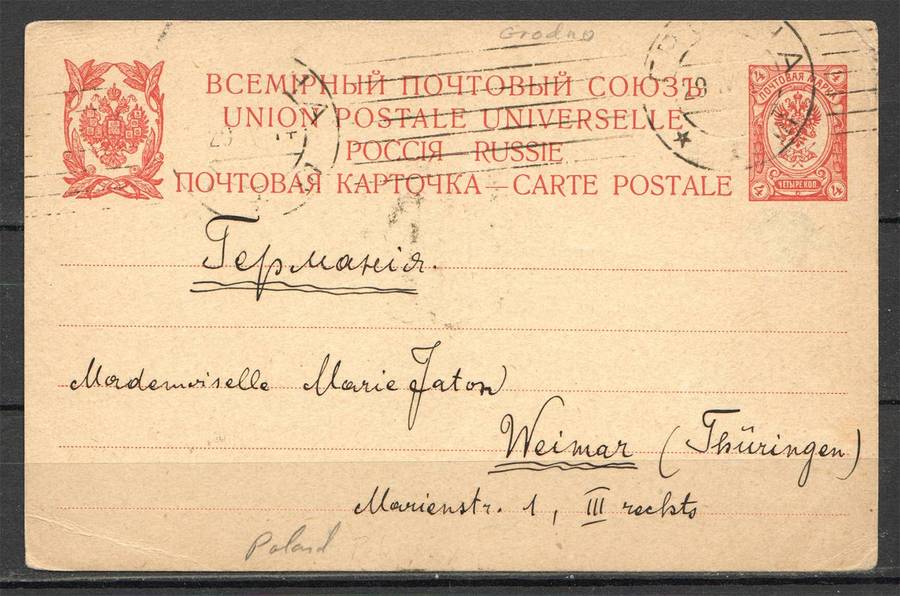 Grodno
ВСЕМІРНЫЙ ПОЧТОВЫЙ СОЮЗЪ
UNION POSTALE UNIVERSELLE
РОССІЯ RUSSIE
ПОЧТОВАЯ КАРТОЧКА — CARTE POSTALE
4 4
ПОЧТОВАЯ МАРКА
4 4
ЧЕТЫРЕ КОП.
29
29
Германія.
Mademoiselle Marie Jaton
Weimar (Thüringen)
Marienstr. 1, III rechts
Poland